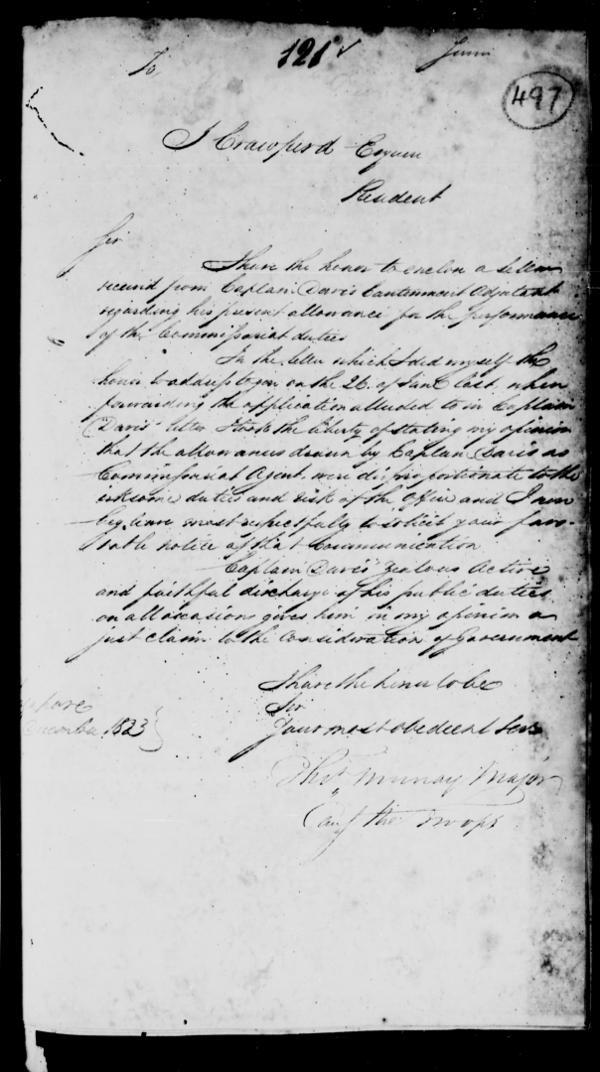 121
To
497
J Crawfurd Esquire
Resident
Sir
I have the honor to enclose a letter
received from Captain Davis Cantonment Adjutant
regarding his present allowance for the performance
of the Commissariat duties
In the letter which I did myself the
honor to address to you on the 26. of June last when
forwarding the application alluded to in Captain
Davis' letter I took the liberty of stating my opinion
that the allowances drawn by Captain Davis as
Commissariat Agent, were disproportionate to the
irksome duties and risk of the Office and I now
beg leave most respectfully to solicit your favo-
rable notice of that Communication
Captain Davis' zealous active
and faithful discharge of his public duties
on all occasions gives him in my opinion a
just claim to the Consideration of Government
I have the honor to be
Sir
Your most obedient Serv
pore
ecember 1823
Murray Major
Comg the Troops